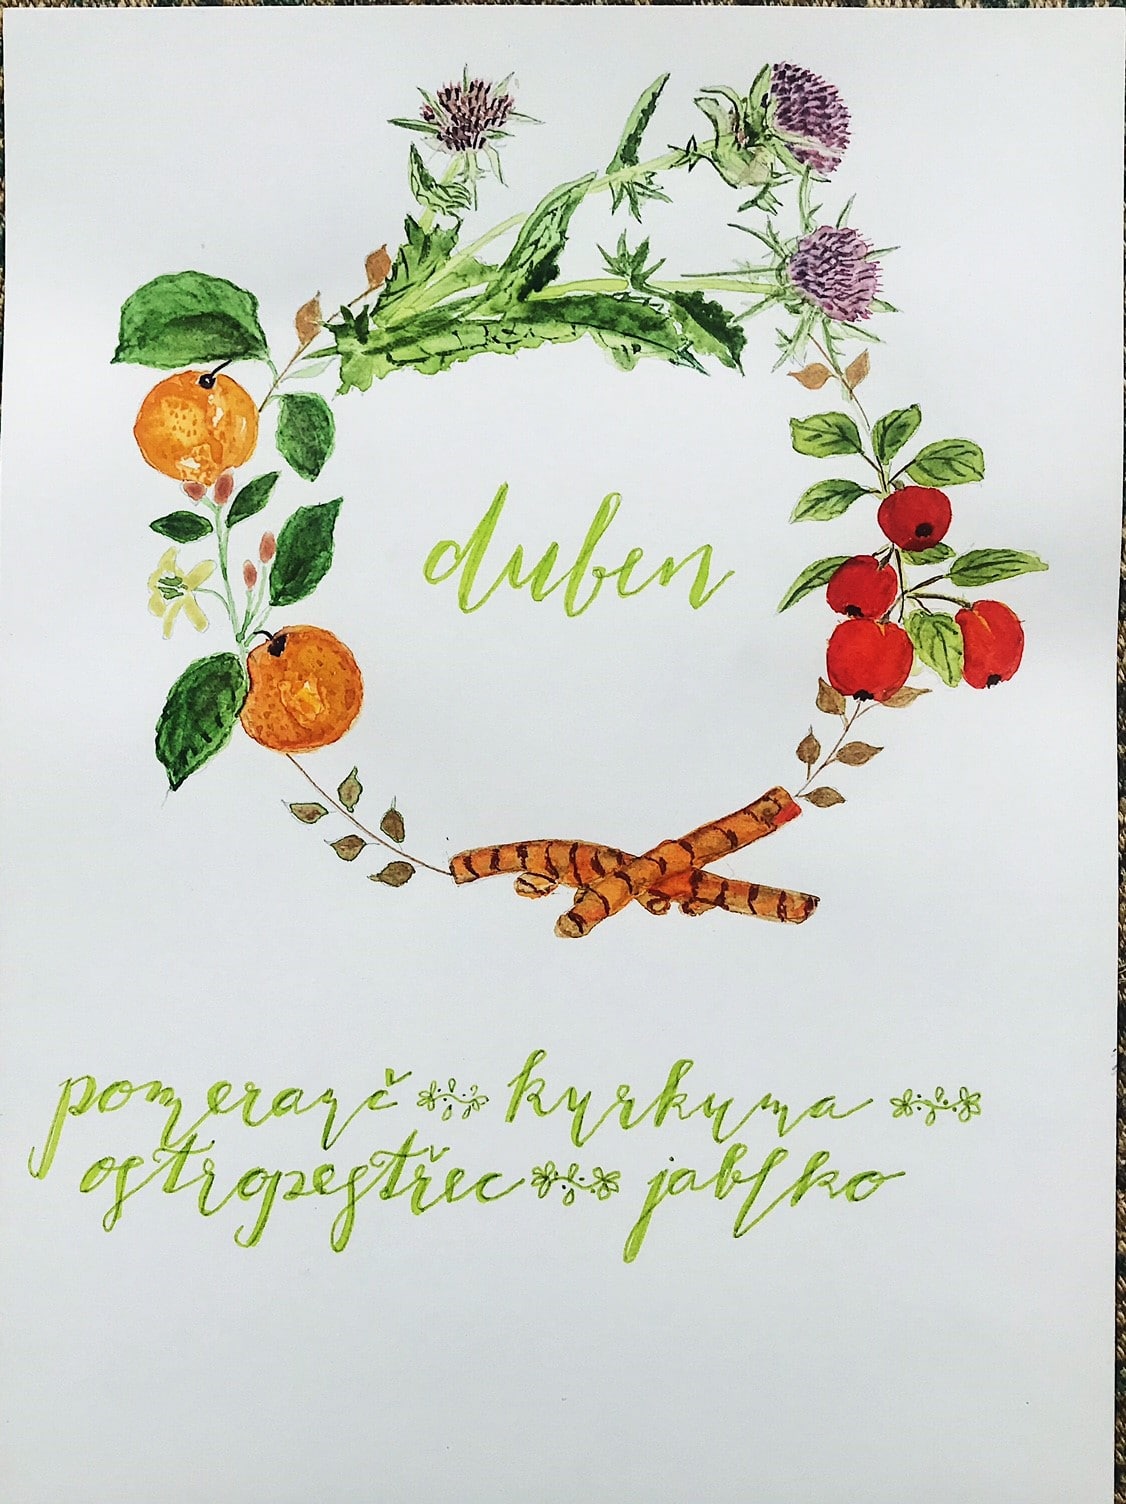 duben
pomeranč kurkuma
ostropestřec jablko